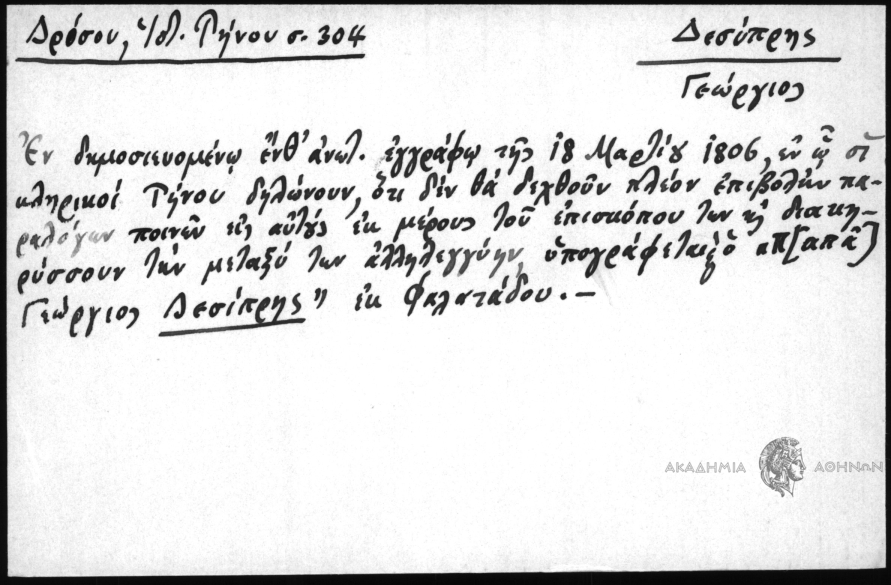 Δρόσου, Ἱστ. Τήνου σ. 304
Δεσύπρης
Γεώργιος
Ἐν δημοσιευομένῳ ἔνθ' ἀνωτ. ἐγγράφῳ τῆς 18 Μαρτίου 1806, ἐν ᾧ οἱ
κληρικοί Τήνου δηλώνουν, ὅτι δέν θά δεχθοῦν πλέον ἐπιβολήν πα-
ραλόγων ποινῶν εἰς αὐτούς ἐκ μέρους τοῦ ἐπισκόπου των καί διακη-
ρύσσουν τήν μεταξύ των ἀλληλεγγύην, ὑπογράφεται ὁ "π[απᾶ]
Γεώργιος Δεσίπρης" ἐκ Φαλατάδου. –
ΑΚΑΔΗΜΙΑ ΑΘΗΝΩΝ